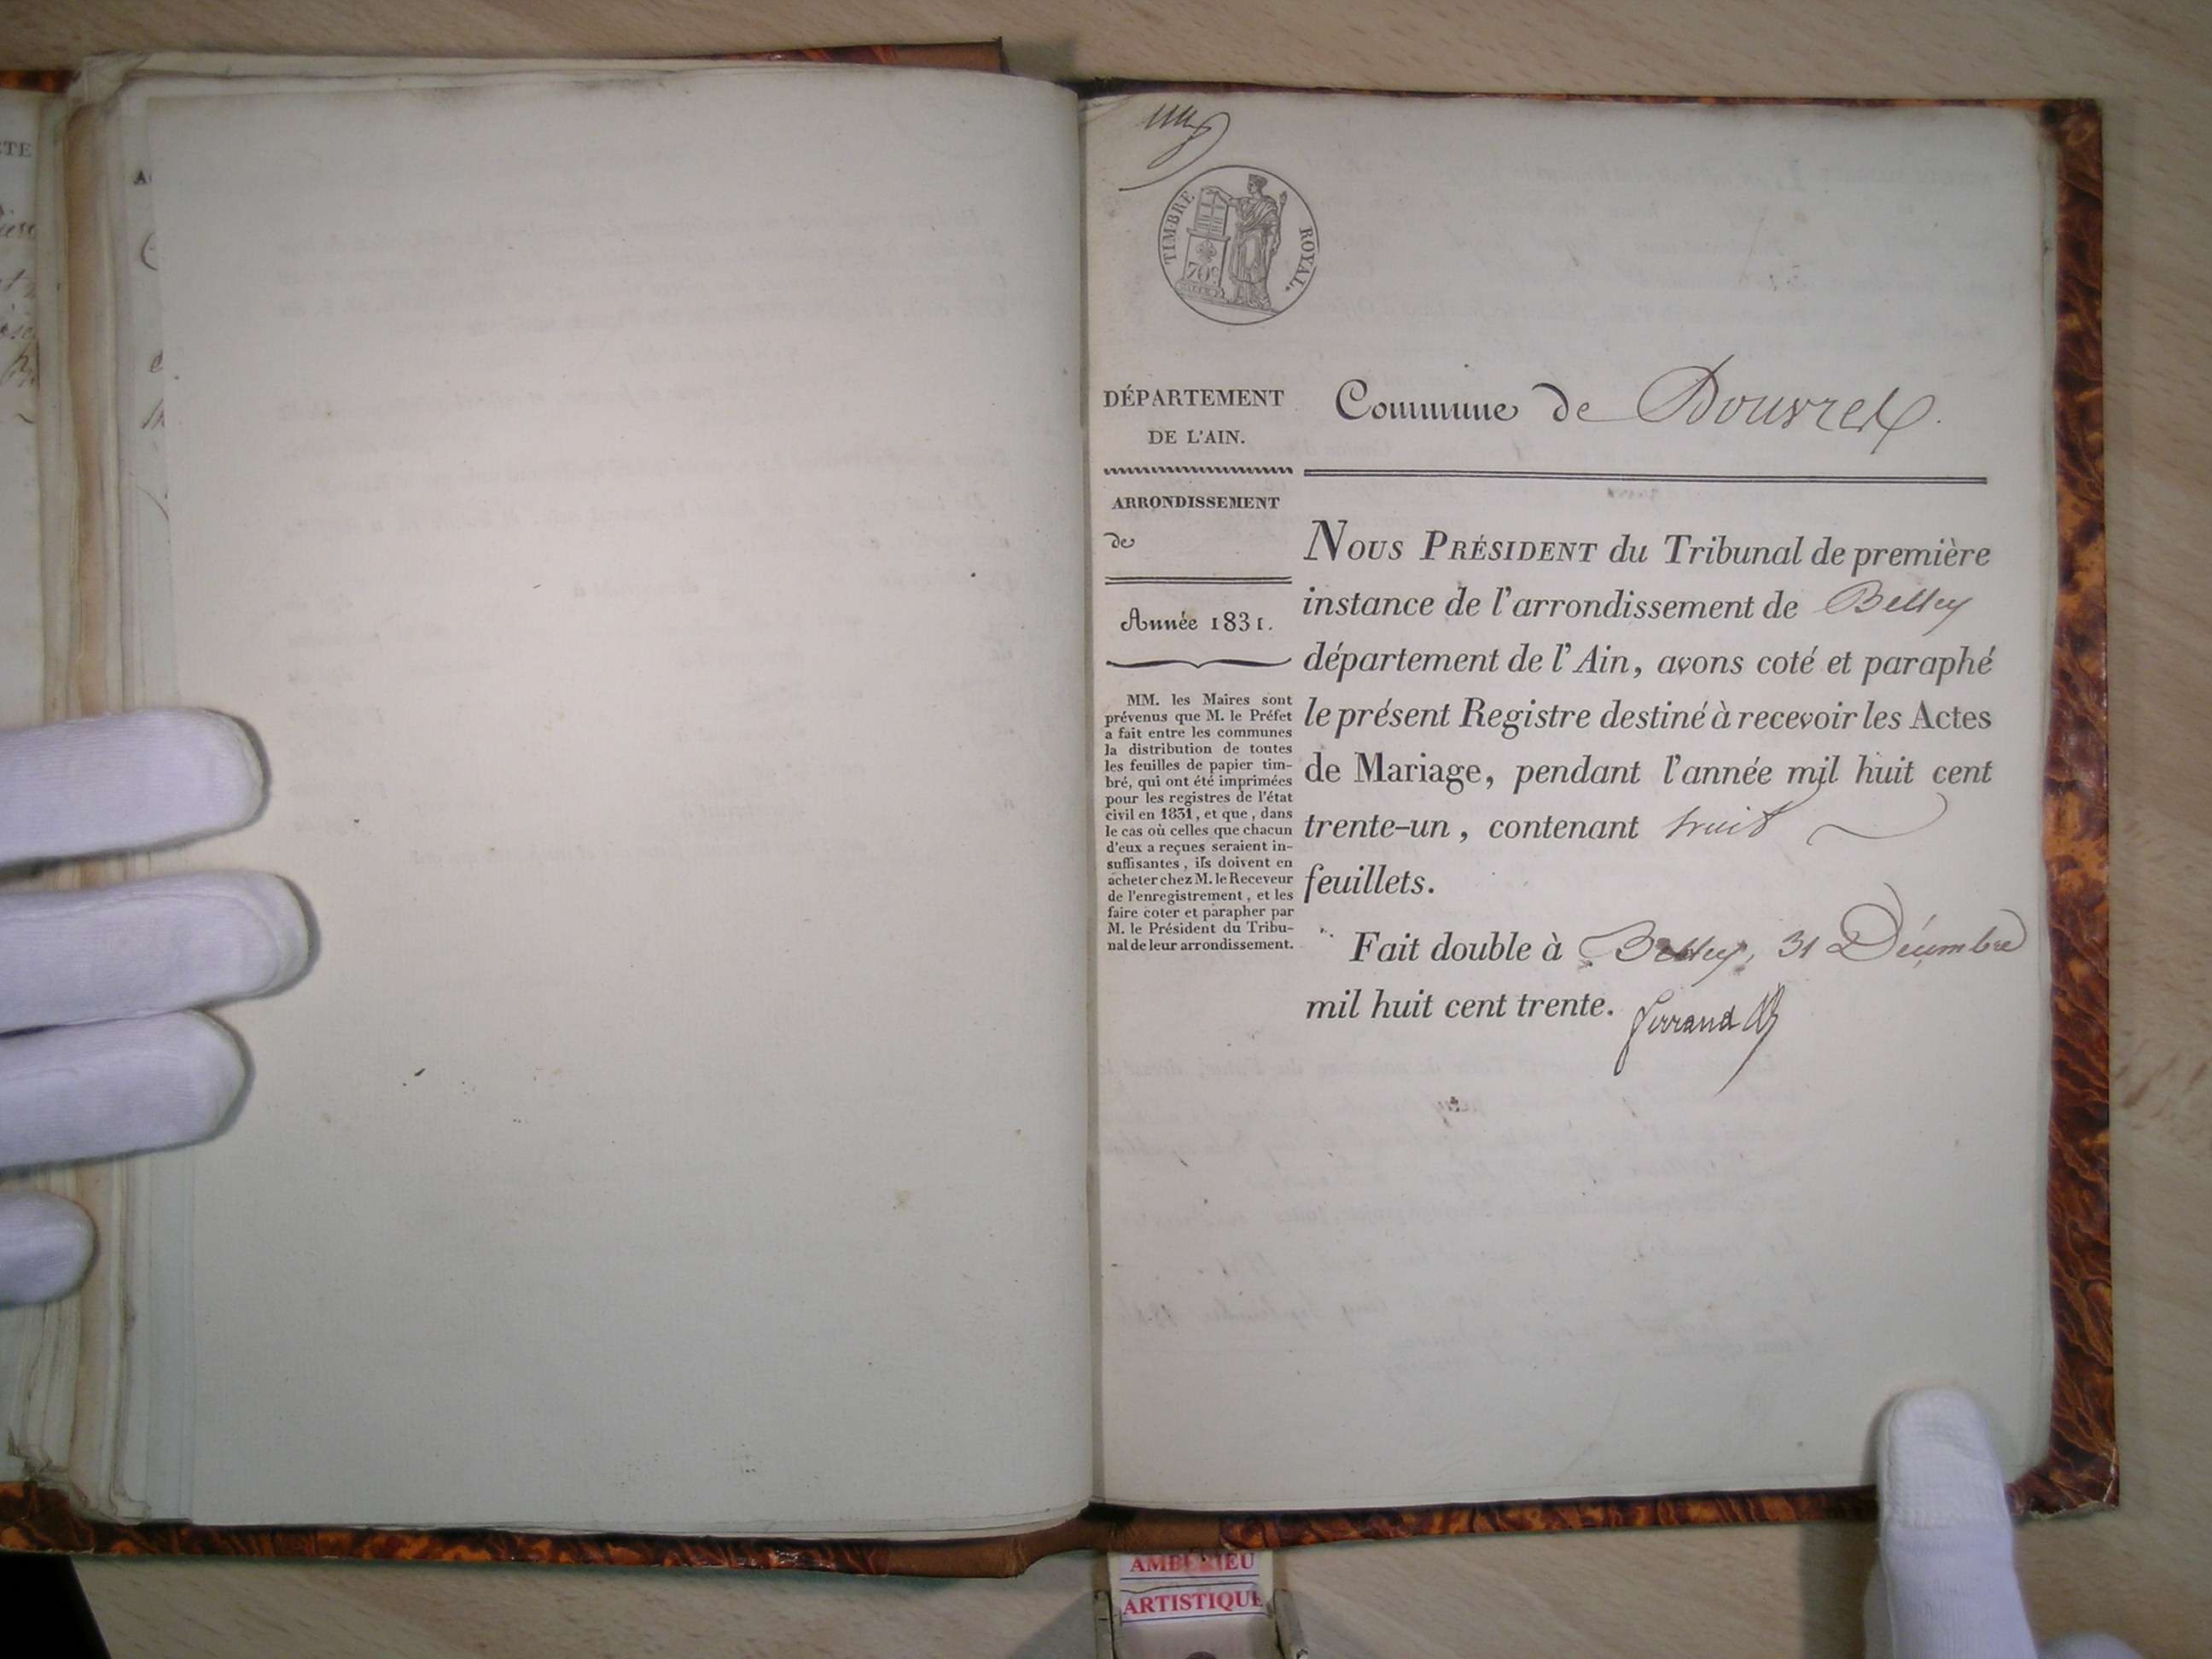 TIMBRE ROYAL.
70c
DÉPARTEMENT
DE L'AIN.
Commune de Douvres.
ARRONDISSEMENT
de
Année 1831.
MM. les Maires sont
prévenus que M. le Préfet
a fait entre les communes
la distribution de toutes
les feuilles de papier tim-
bré, qui ont été imprimées
pour les registres de l'état
civil en 1831, et que, dans
le cas où celles que chacun
d'eux a reçues seraient in-
suffisantes, ils doivent en
acheter chez M. le Receveur
de l'enregistrement, et les
faire coter et parapher par
M. le Président du Tribu-
nal de leur arrondissement.
NOUS PRÉSIDENT du Tribunal de première
instance de l'arrondissement de Belley
département de l'Ain, avons coté et paraphé
le présent Registre destiné à recevoir les Actes
de Mariage, pendant l'année mil huit cent
trente-un, contenant huit
feuillets.
Fait double à Belley, 31 Décembre
mil huit cent trente.
AMBÉRIEU
ARTISTIQUE